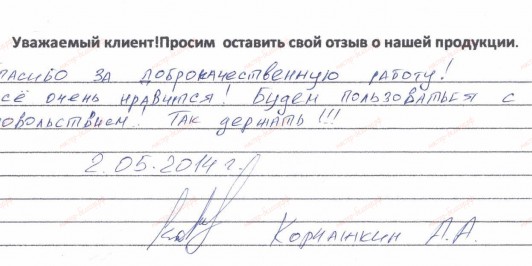 Уважаемый клиент!Просим оставить свой отзыв о нашей продукции.
пасибо за доброкачественную работу!
сё очень нравится! Будем пользоваться с
овольствием! Так держать!!!
2.05.2014 г.
А.А.